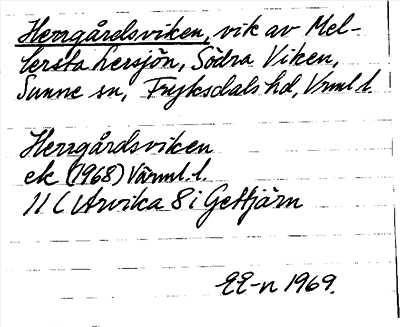 Herrgårdsviken, vik av Mel-
lersta Lersjön, Södra Viken,
Sunne sn, Fryksdals hd, Vrml. l.
Herrgårdsviken
ek (1968) Värml. l.
11 C Arvika 8 i Gettjärn
EE-n 1969.